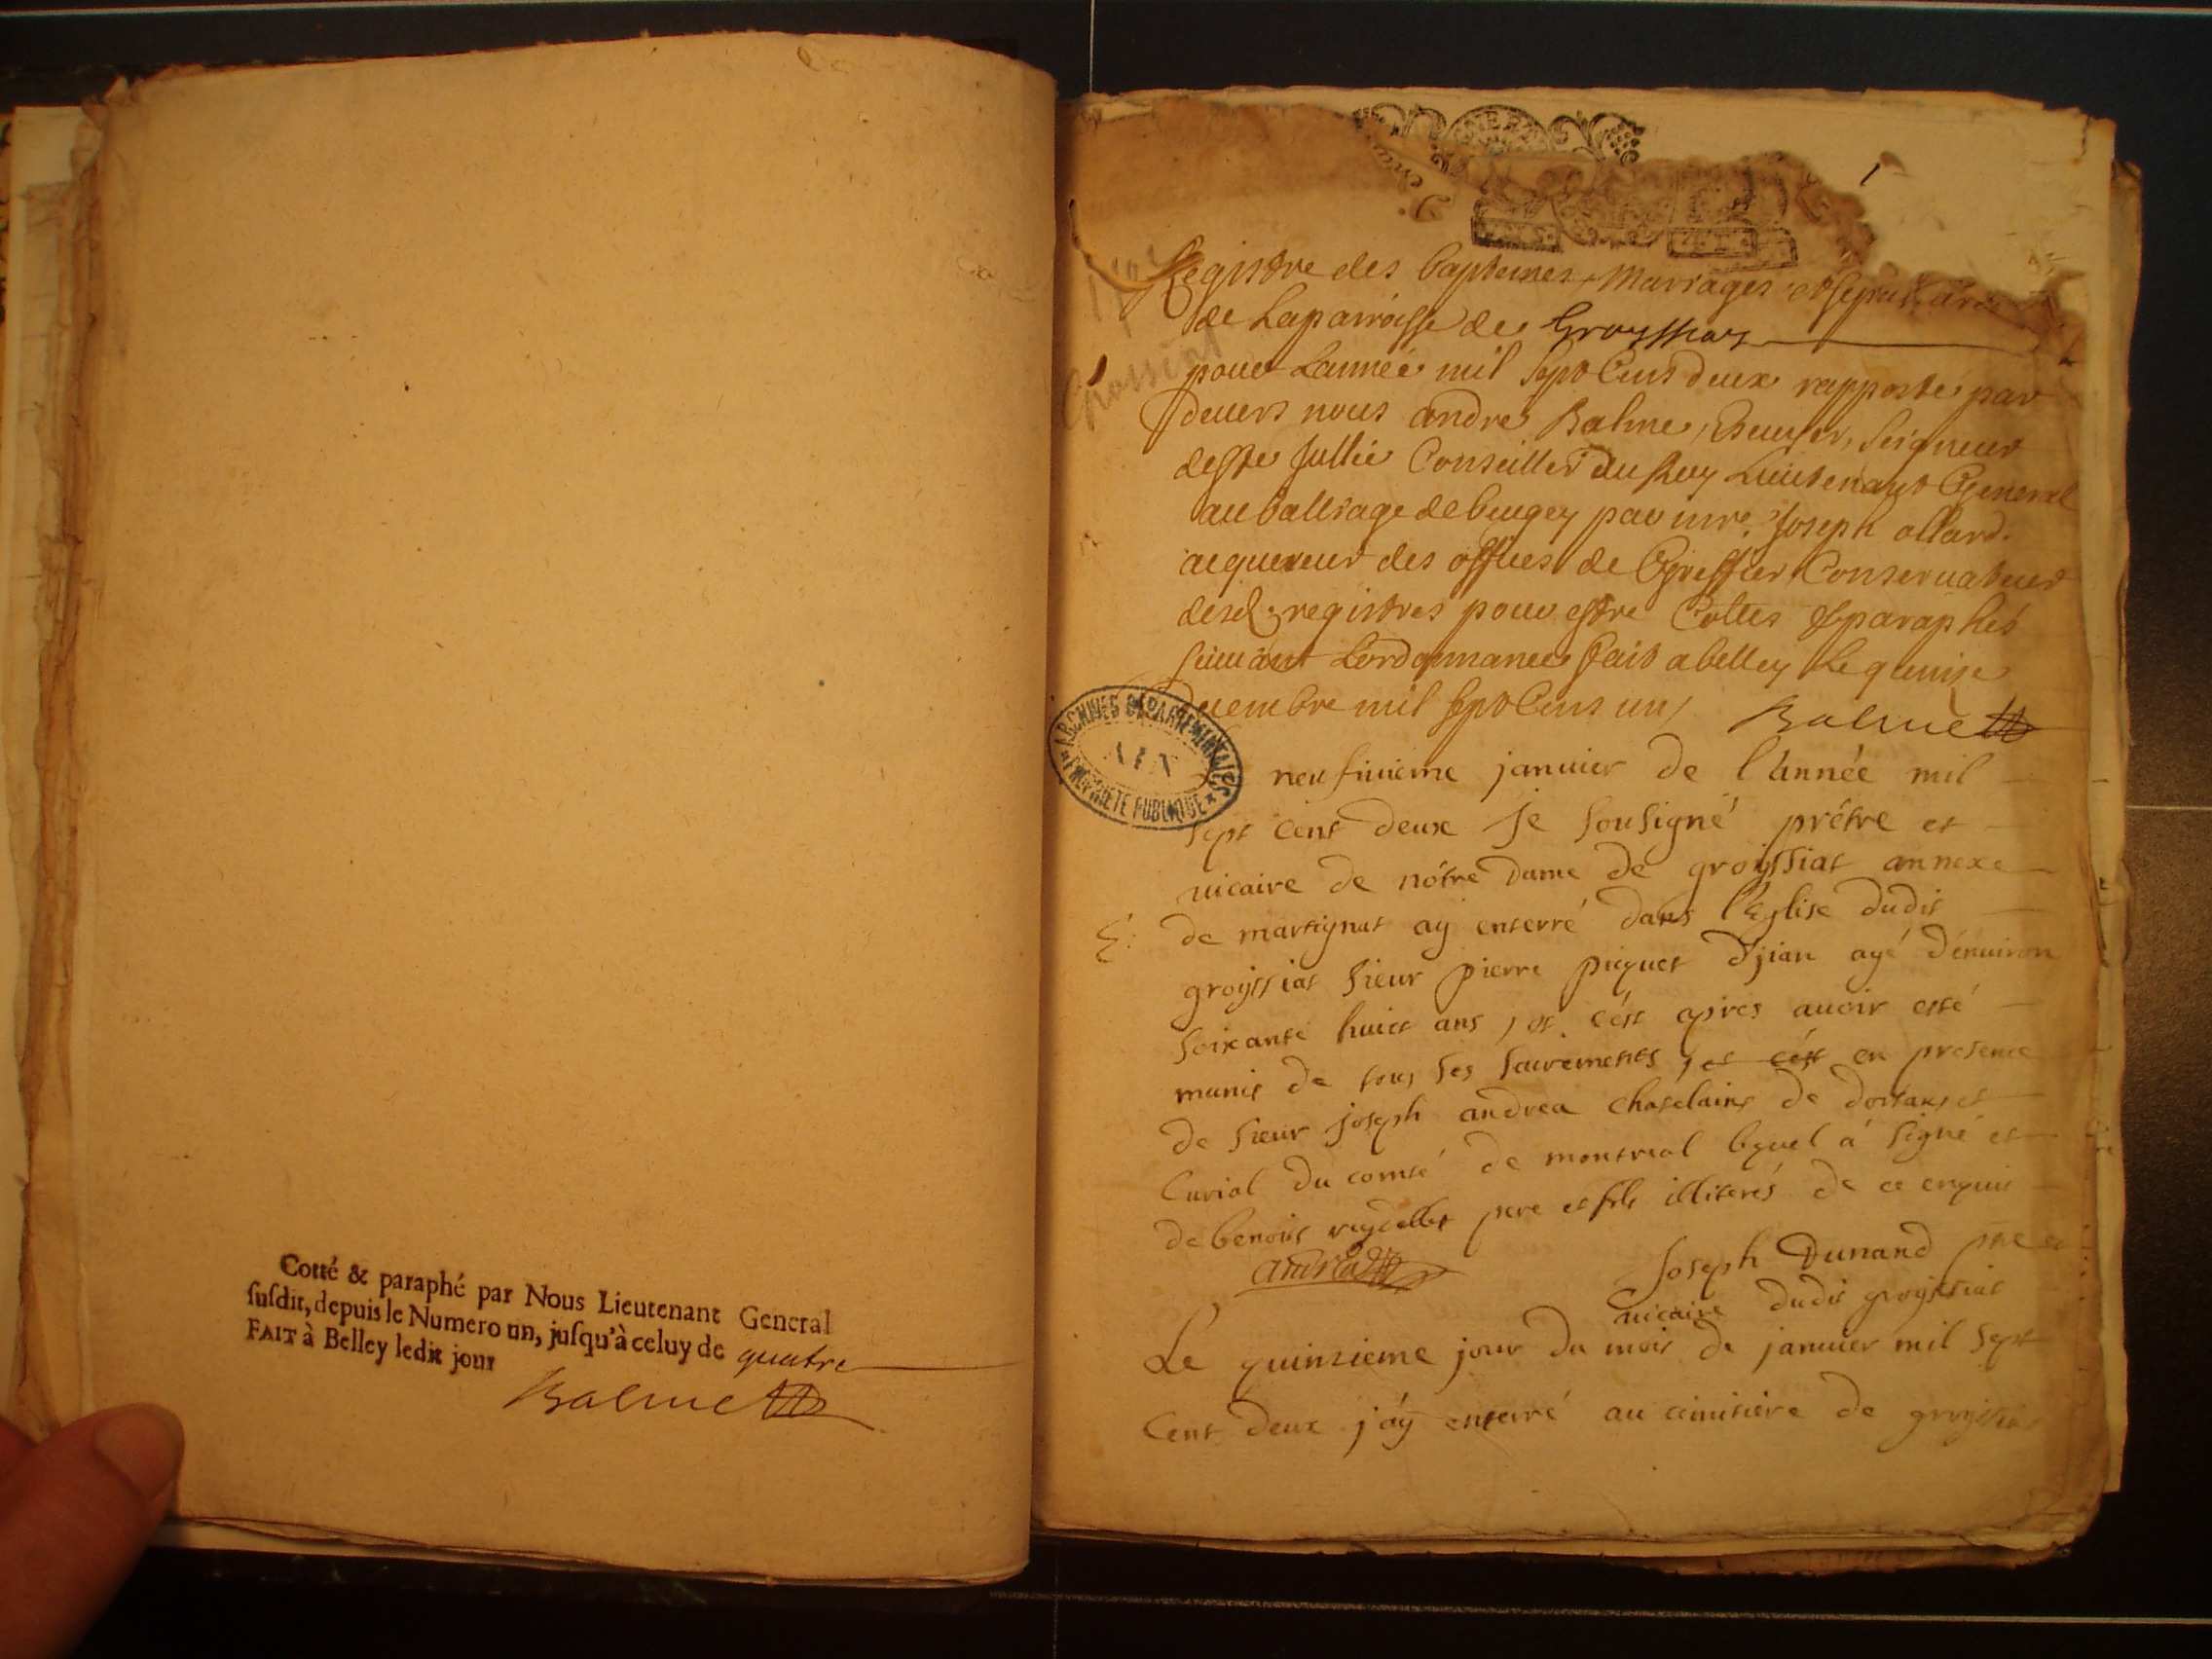 Cotté & paraphé par Nous Lieutenant General
susdit, depuis le Numero un, jusqu'à celuy de quatre
FAIT à Belley ledit jour
Balme
1
Registre des baptemes, Mariages et sepultures
de Laparroisse de Groyssia
pour Lannée mil sept Cens deux rapporté par
devers nous andre Balme, Escuyer, Seigneur
de Ste Jullie Conseiller du Roy Lieutenant General
au balliage de bugey par mre Joseph allard
acquereur des offices de Greffier Conservateur
desd. registres pour estre Cottés et paraphés
suivant Lordonnance fait a belley le quinze
decembre mil sept Cens un
Balme
ARCHIVES DÉPARTEMENTALES
AIN
PROPRIÉTÉ PUBLIQUE
neufiuieme januier de l'année mil
sept cent deux Je sousigné prêtre et
uicaire de nôtre dame de groyssiat annexe
de martignat aÿ enterré dans l'Eglise dudit
groyssiat sieur pierre picquet d'jian agé d'enuiron
soixante huict ans, et c'ést apres auoir esté
munit de tous ses sacrements, et c'ést en presence
de sieur joseph andrea chatelains de dortans et
curial du comté de montreal lequel a signé et
de benoit reydellet pere et fils illiterés de ce enquis
andréa
Joseph Dunand ptre et
uicaire dudit groyssiat
Le quinzieme jour du mois de januier mil sept
Cent deux j'ay enterré au cimitiere de groyssiat